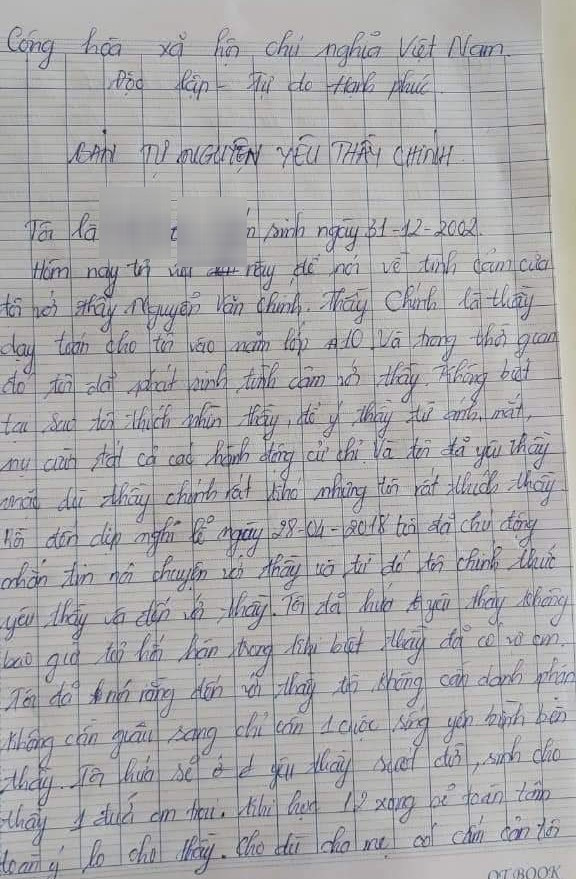 Cộng hòa xã hội chủ nghĩa Việt Nam
Độc lập - Tự do Hạnh phúc
BẢN TỰ NGUYỆN YÊU THẦY CHÍNH
Tôi là sinh ngày 31-12-2002.
Hôm nay tôi này để nói về tình cảm của
tôi với thầy Nguyễn Văn Chính. Thầy Chính là thầy
dạy toán cho tôi vào năm lớp 10. Và trong thời gian
đó tôi đã phát sinh tình cảm với thầy. Không biết
tại sao tôi thích nhìn thầy, để ý thầy từ ánh mắt,
nụ cười tất cả các hành động cử chỉ. Và tôi đã yêu thầy
mặc dù thầy chính rất khó nhưng tôi rất thích thầy
đến dịp nghỉ lễ ngày 28-04-2018 tôi đã chủ động
nhắn tin nói chuyện với thầy và từ đó tôi chính thức
yêu thầy và đến với thầy. Tôi đã hứa yêu thầy không
bao giờ tôi hối hận trong khi biết thầy đã có vợ con.
Tôi đã rằng đến với thầy tôi không cần danh phận
không cần giàu sang chỉ cần 1 cuộc sống yên bình bên
thầy. Tôi hứa sẽ ở yêu thầy suốt đời, sinh cho
thầy 1 đứa con trai. Khi học 12 xong sẽ toàn tâm
toàn ý lo cho thầy. Cho dù cha mẹ có cấm cản tôi